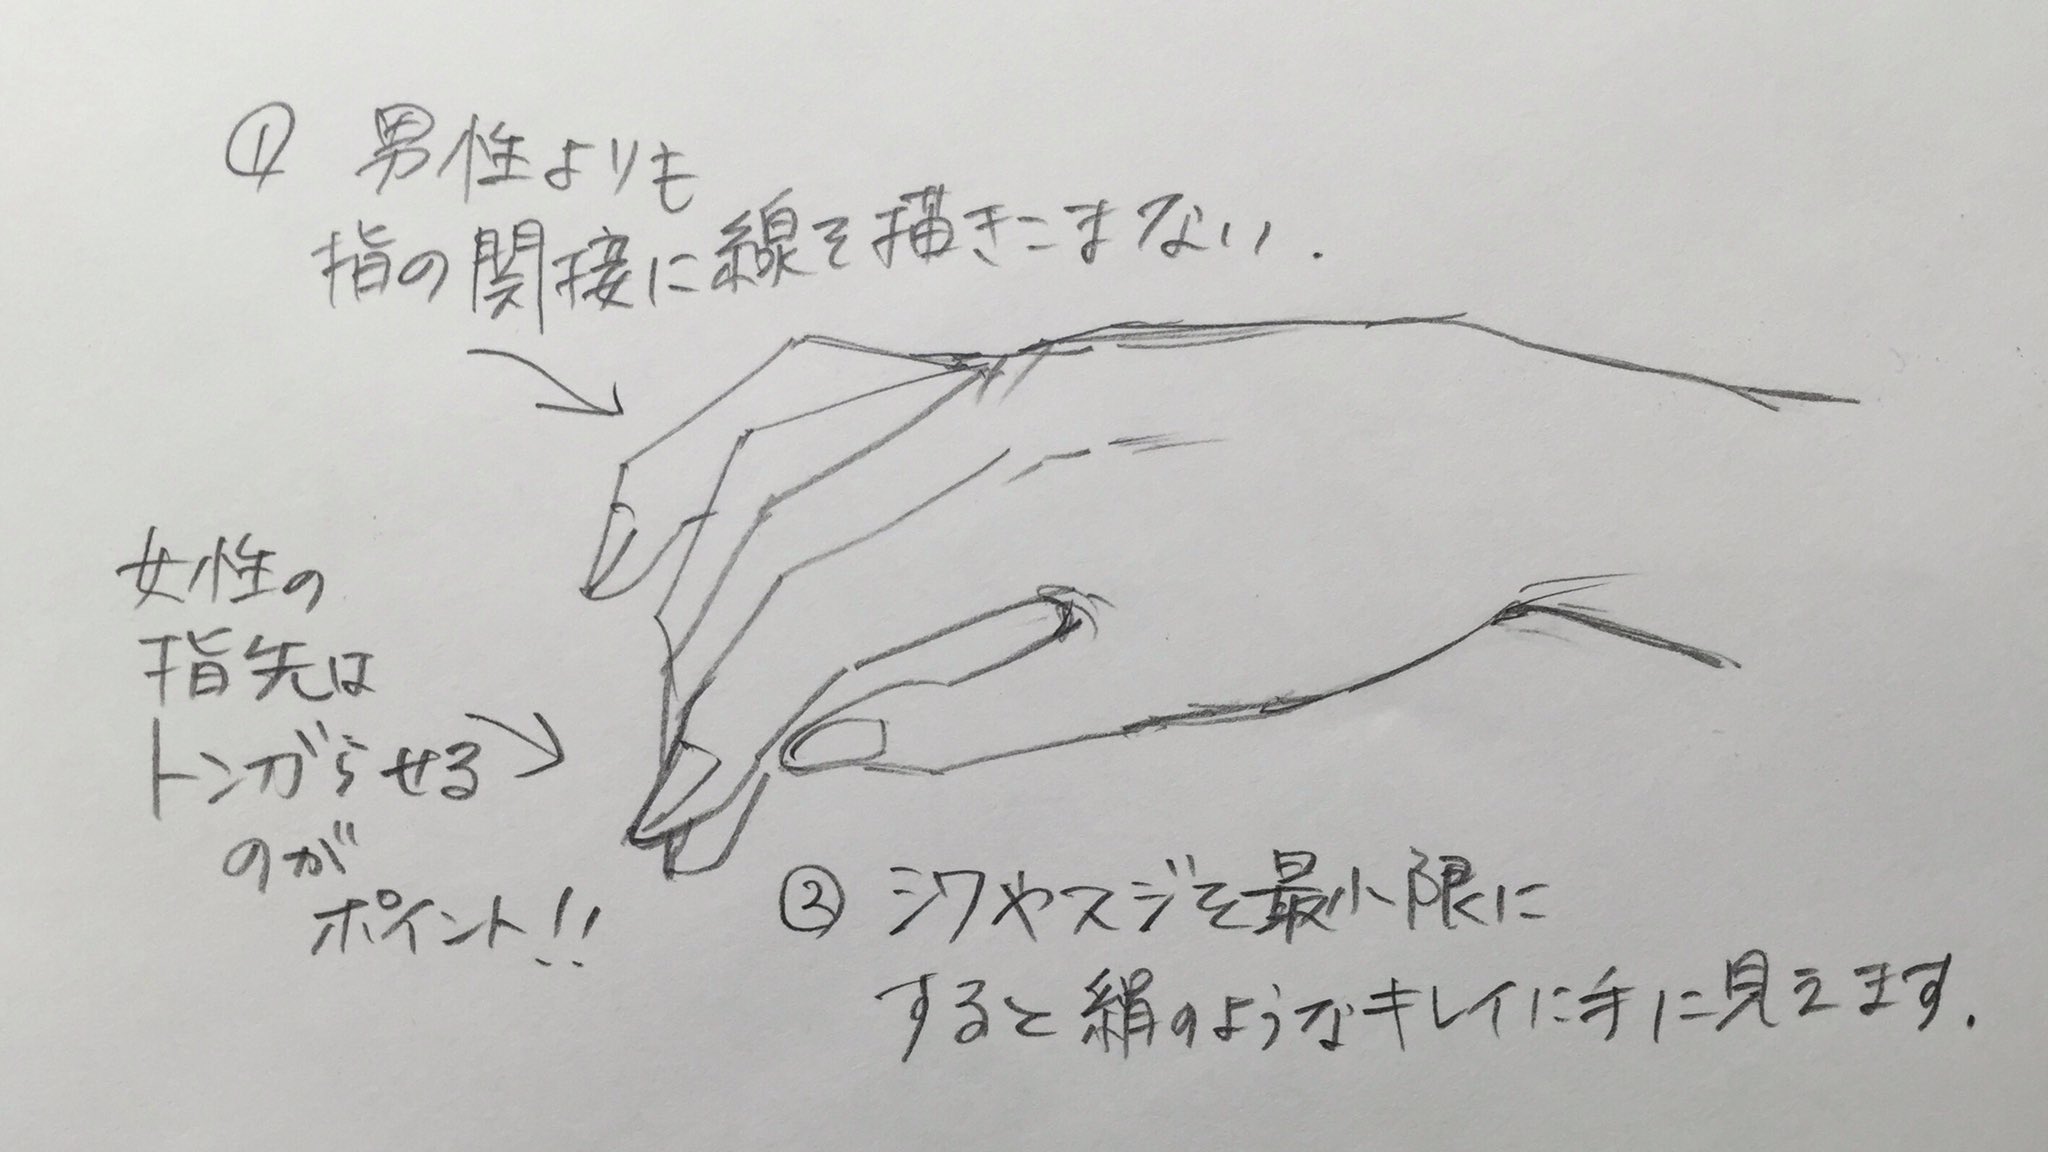 ① 男性よりも
指の関接に線を描きこまない.
女性の
指先は
トンガらせる
のが
ポイント!!
② シワやスジを最小限に
すると絹のようなキレイに手に見えます.